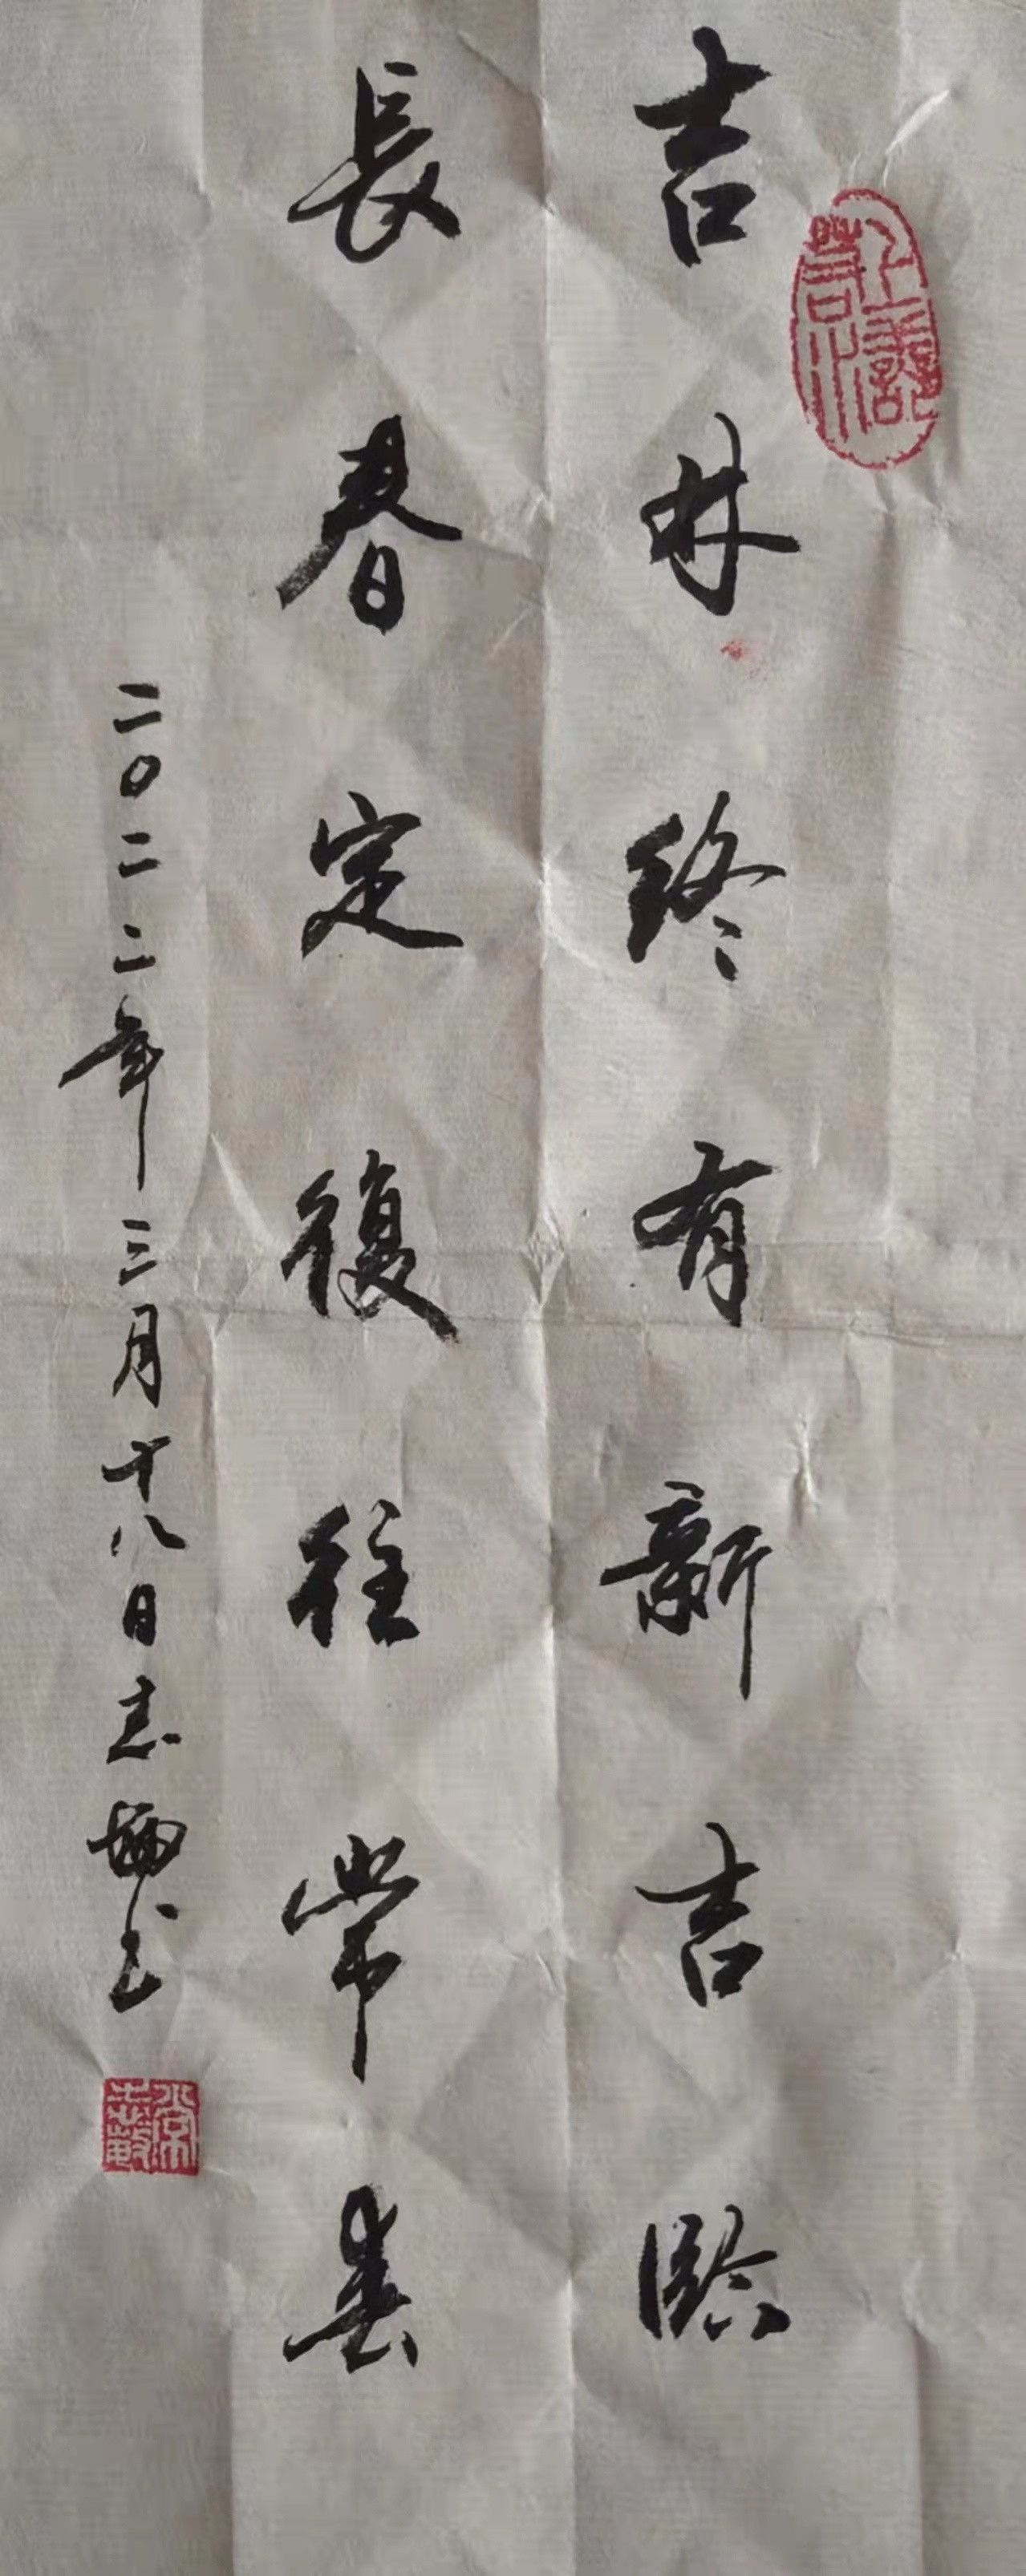 吉林終有新吉臨
長春定復往常春
二〇二二年三月十八日志 书
上善若水